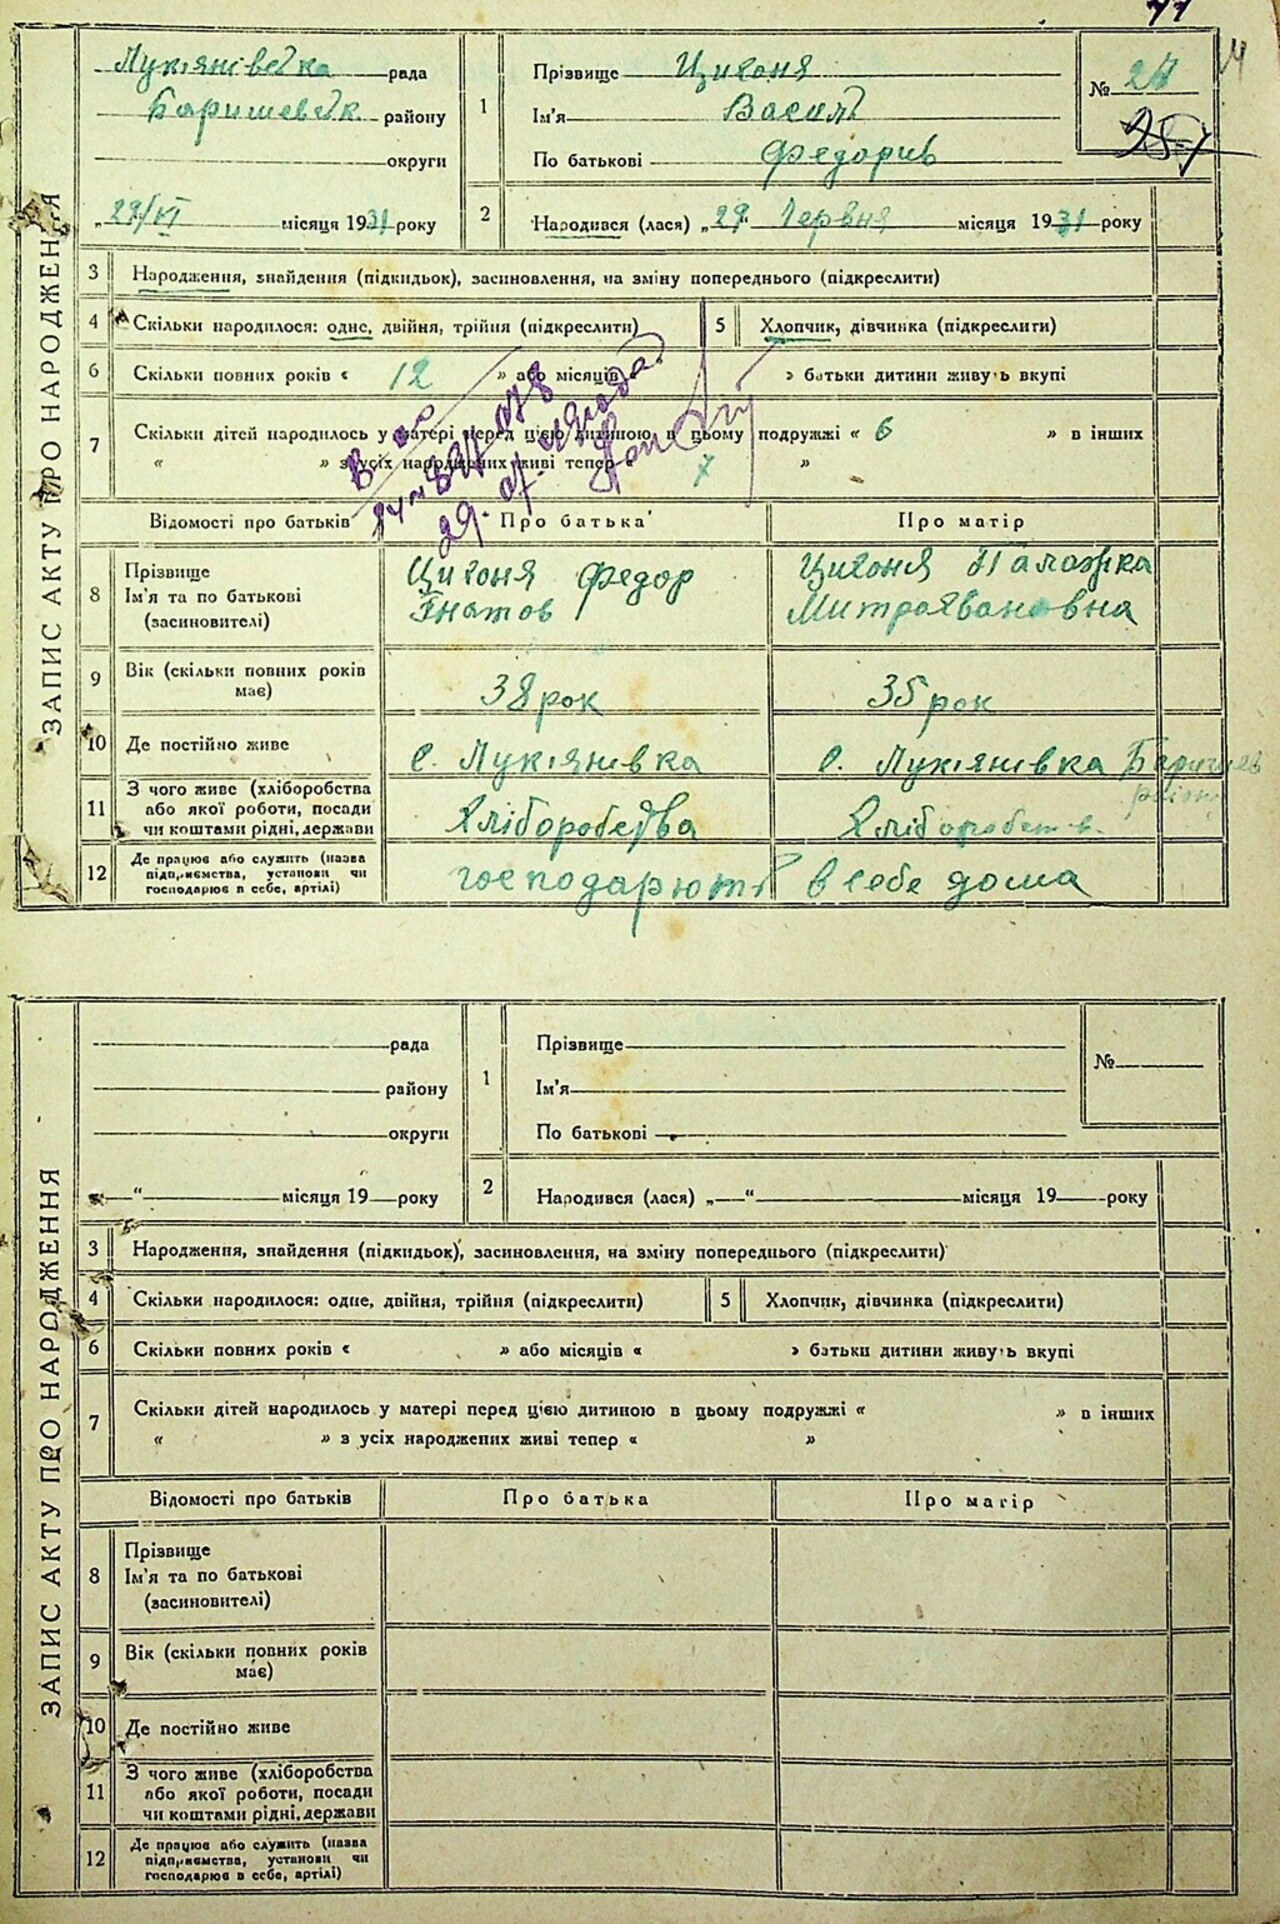 77
Лукянівська рада
Баришевськ. району
округи
29/VI місяця 1931 року
1
Прізвище Цигоня
Ім'я Василь
По батькові Федорив
№ 24
2
Народився (лася) „29 Червня місяця 1931 року
ЗАПИС АКТУ ПРО НАРОДЖЕННЯ
3 Народження, знайдення (підкидьок), засиновлення, на зміну попереднього (підкреслити)
4 Скільки народилося: одне, двійня, трійня (підкреслити) 5 Хлопчик, дівчинка (підкреслити)
6 Скільки повних років « 12 » або місяців « » батьки дитини живуть вкупі
7 Скільки дітей народилось у матері перед цією дитиною в цьому подружжі « 6 » в інших
« » з усіх народжених живі тепер « 7 »
Відомості про батьків Про батька Про матір
8 Прізвище
Ім'я та по батькові
(засиновителі)
Цигоня Федор
Гнатов
Цигоня Палажка
9 Вік (скільки повних років
має)
38 рок 35 рок
10 Де постійно живе с. Лукянівка с. Лукянівка Баришев
11 З чого живе (хліборобства
або якої роботи, посади
чи коштами рідні, держави
Хліборобства Хліборобств.
12 Де працює або служить (назва
підприємства, установи чи
господарює в себе, артілі)
господарють в себе дома
рада
району
округи
„ “ місяця 19 року
1
Прізвище
Ім'я
По батькові
№
2
Народився (лася) „ “ місяця 19 року
ЗАПИС АКТУ ПРО НАРОДЖЕННЯ
3 Народження, знайдення (підкидьок), засиновлення, на зміну попереднього (підкреслити)
4 Скільки народилося: одне, двійня, трійня (підкреслити) 5 Хлопчик, дівчинка (підкреслити)
6 Скільки повних років « » або місяців « » батьки дитини живуть вкупі
7 Скільки дітей народилось у матері перед цією дитиною в цьому подружжі « » в інших
« » з усіх народжених живі тепер « »
Відомості про батьків Про батька Про матір
8 Прізвище
Ім'я та по батькові
(засиновителі)
9 Вік (скільки повних років
має)
10 Де постійно живе
11 З чого живе (хліборобства
або якої роботи, посади
чи коштами рідні, держави
12 Де працює або служить (назва
підприємства, установи чи
господарює в себе, артілі)